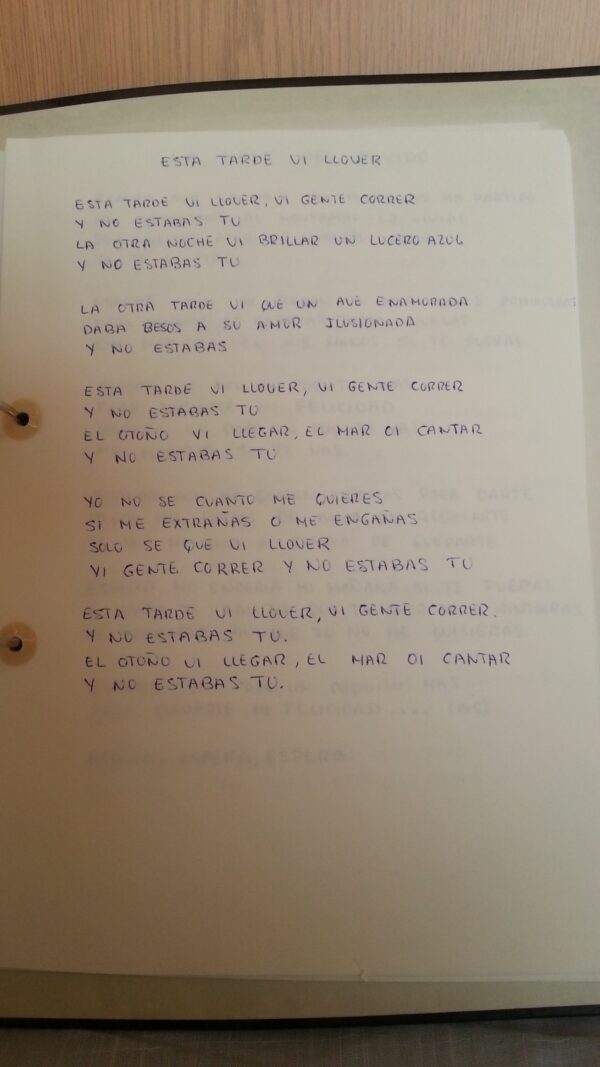 ESTA TARDE VI LLOVER
ESTA TARDE VI LLOVER, VI GENTE CORRER
Y NO ESTABAS TU
LA OTRA NOCHE VI BRILLAR UN LUCERO AZUL
Y NO ESTABAS TU
LA OTRA TARDE VI QUE UN AVE ENAMORADA
DABA BESOS A SU AMOR ILUSIONADA
Y NO ESTABAS
ESTA TARDE VI LLOVER, VI GENTE CORRER
Y NO ESTABAS TU
EL OTOÑO VI LLEGAR, EL MAR OI CANTAR
Y NO ESTABAS TU
YO NO SE CUANTO ME QUIERES
SI ME EXTRAÑAS O ME ENGAÑAS
SOLO SE QUE VI LLOVER
VI GENTE CORRER Y NO ESTABAS TU
ESTA TARDE VI LLOVER, VI GENTE CORRER.
Y NO ESTABAS TU.
EL OTOÑO VI LLEGAR, EL MAR OI CANTAR
Y NO ESTABAS TU.